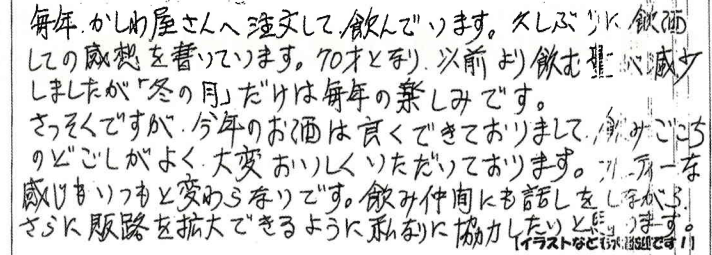 毎年、かしわ屋さんへ注文して、飲んでいます。久しぶりに飲酒
しての感想を書いています。70才となり、以前より飲む量が減少
しましたが「冬の月」だけは毎年の楽しみです。
さっそくですが、今年のお酒は良くできておりまして、飲みごこち
のどごしがよく、大変おいしくいただいております。フルーティーな
感じもいつもと変わらないです。飲み仲間にも話しをしながら、
さらに販路を拡大できるように私なりに協力したいと思います。
「イラストなども大歓迎です！」